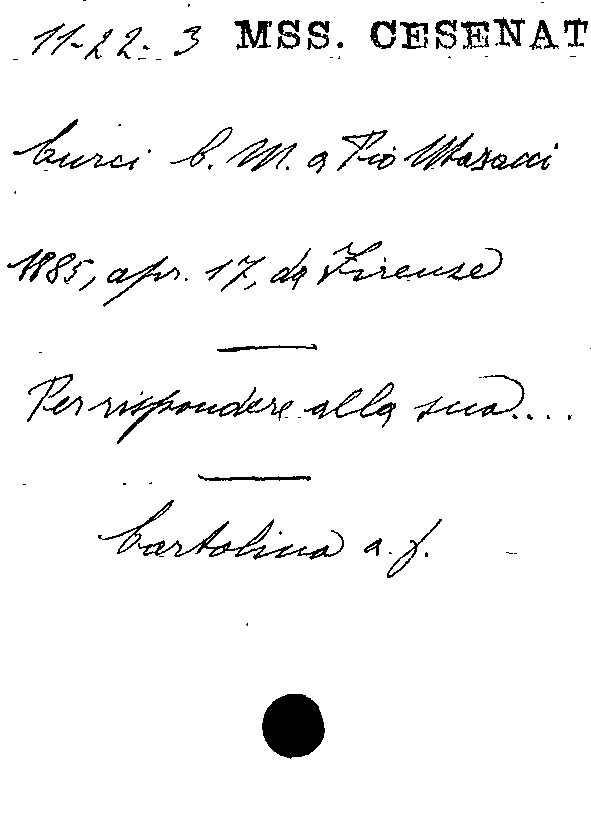 11-22-3 MSS. CESENAT
Curci C. M. a Pio Masacci
1885, apr. 17, da Firenze
Per rispondere alla sua....
Cartolina a. f.